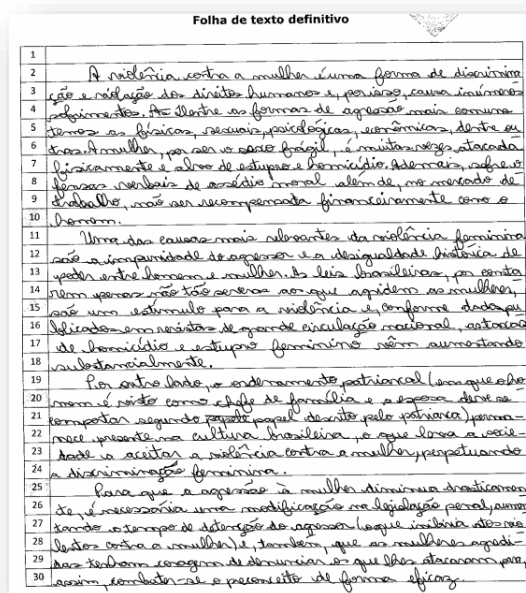 Folha de texto definitivo
1
2 A violência contra a mulher é uma forma de discrimina
3 ção e violação dos direitos humanos e, por isso, causa inúmeros
4 sofrimentos. As dentre as formas de agressão mais comuns
5 temos as físicas, sexuais, psicológicas, econômicas, dentre ou
6 tras. A mulher, por ser o sexo frágil, é muitas vezes atacada
7 fisicamente e alvo de estupro e homicídio. Ademais, sofre o
8 fensas verbais de assédio moral além de, no mercado de
9 trabalho, não ser recompensada financeiramente como o
10 homem.
11 Uma das causas mais relevantes da violência feminina
12 são a impunidade do agressor e a desigualdade histórica de
13 poder entre homem e mulher. As leis brasileiras, por conta
14 rem penas não tão severas aos que agridem as mulheres,
15 são um estímulo para a violência e, conforme dados pu
16 blicados em revistas de grande circulação nacional, as taxas
17 de homicídio e estupro feminino vêm aumentando
18 substancialmente.
19 Por outro lado, o ordenamento patriarcal (em que o ho
20 mem é visto como chefe de família e a esposa deve se
21 comportar segundo papel descrito pelo patriarca) perma
22 nece presente na cultura brasileira, o que leva a socie-
23 dade a aceitar a violência contra a mulher, perpetuando
24 a discriminação feminina.
25 Para que a agressão à mulher diminua drasticamen
26 te, é necessária uma modificação na legislação penal, aumen
27 tando o tempo de detenção do agressor (o que inibiria atos vio
28 lentos contra a mulher) e, também, que as mulheres agredi-
29 das tenham coragem de denunciar os que lhes atacaram para,
30 assim, combater-se o preconceito de forma eficaz.